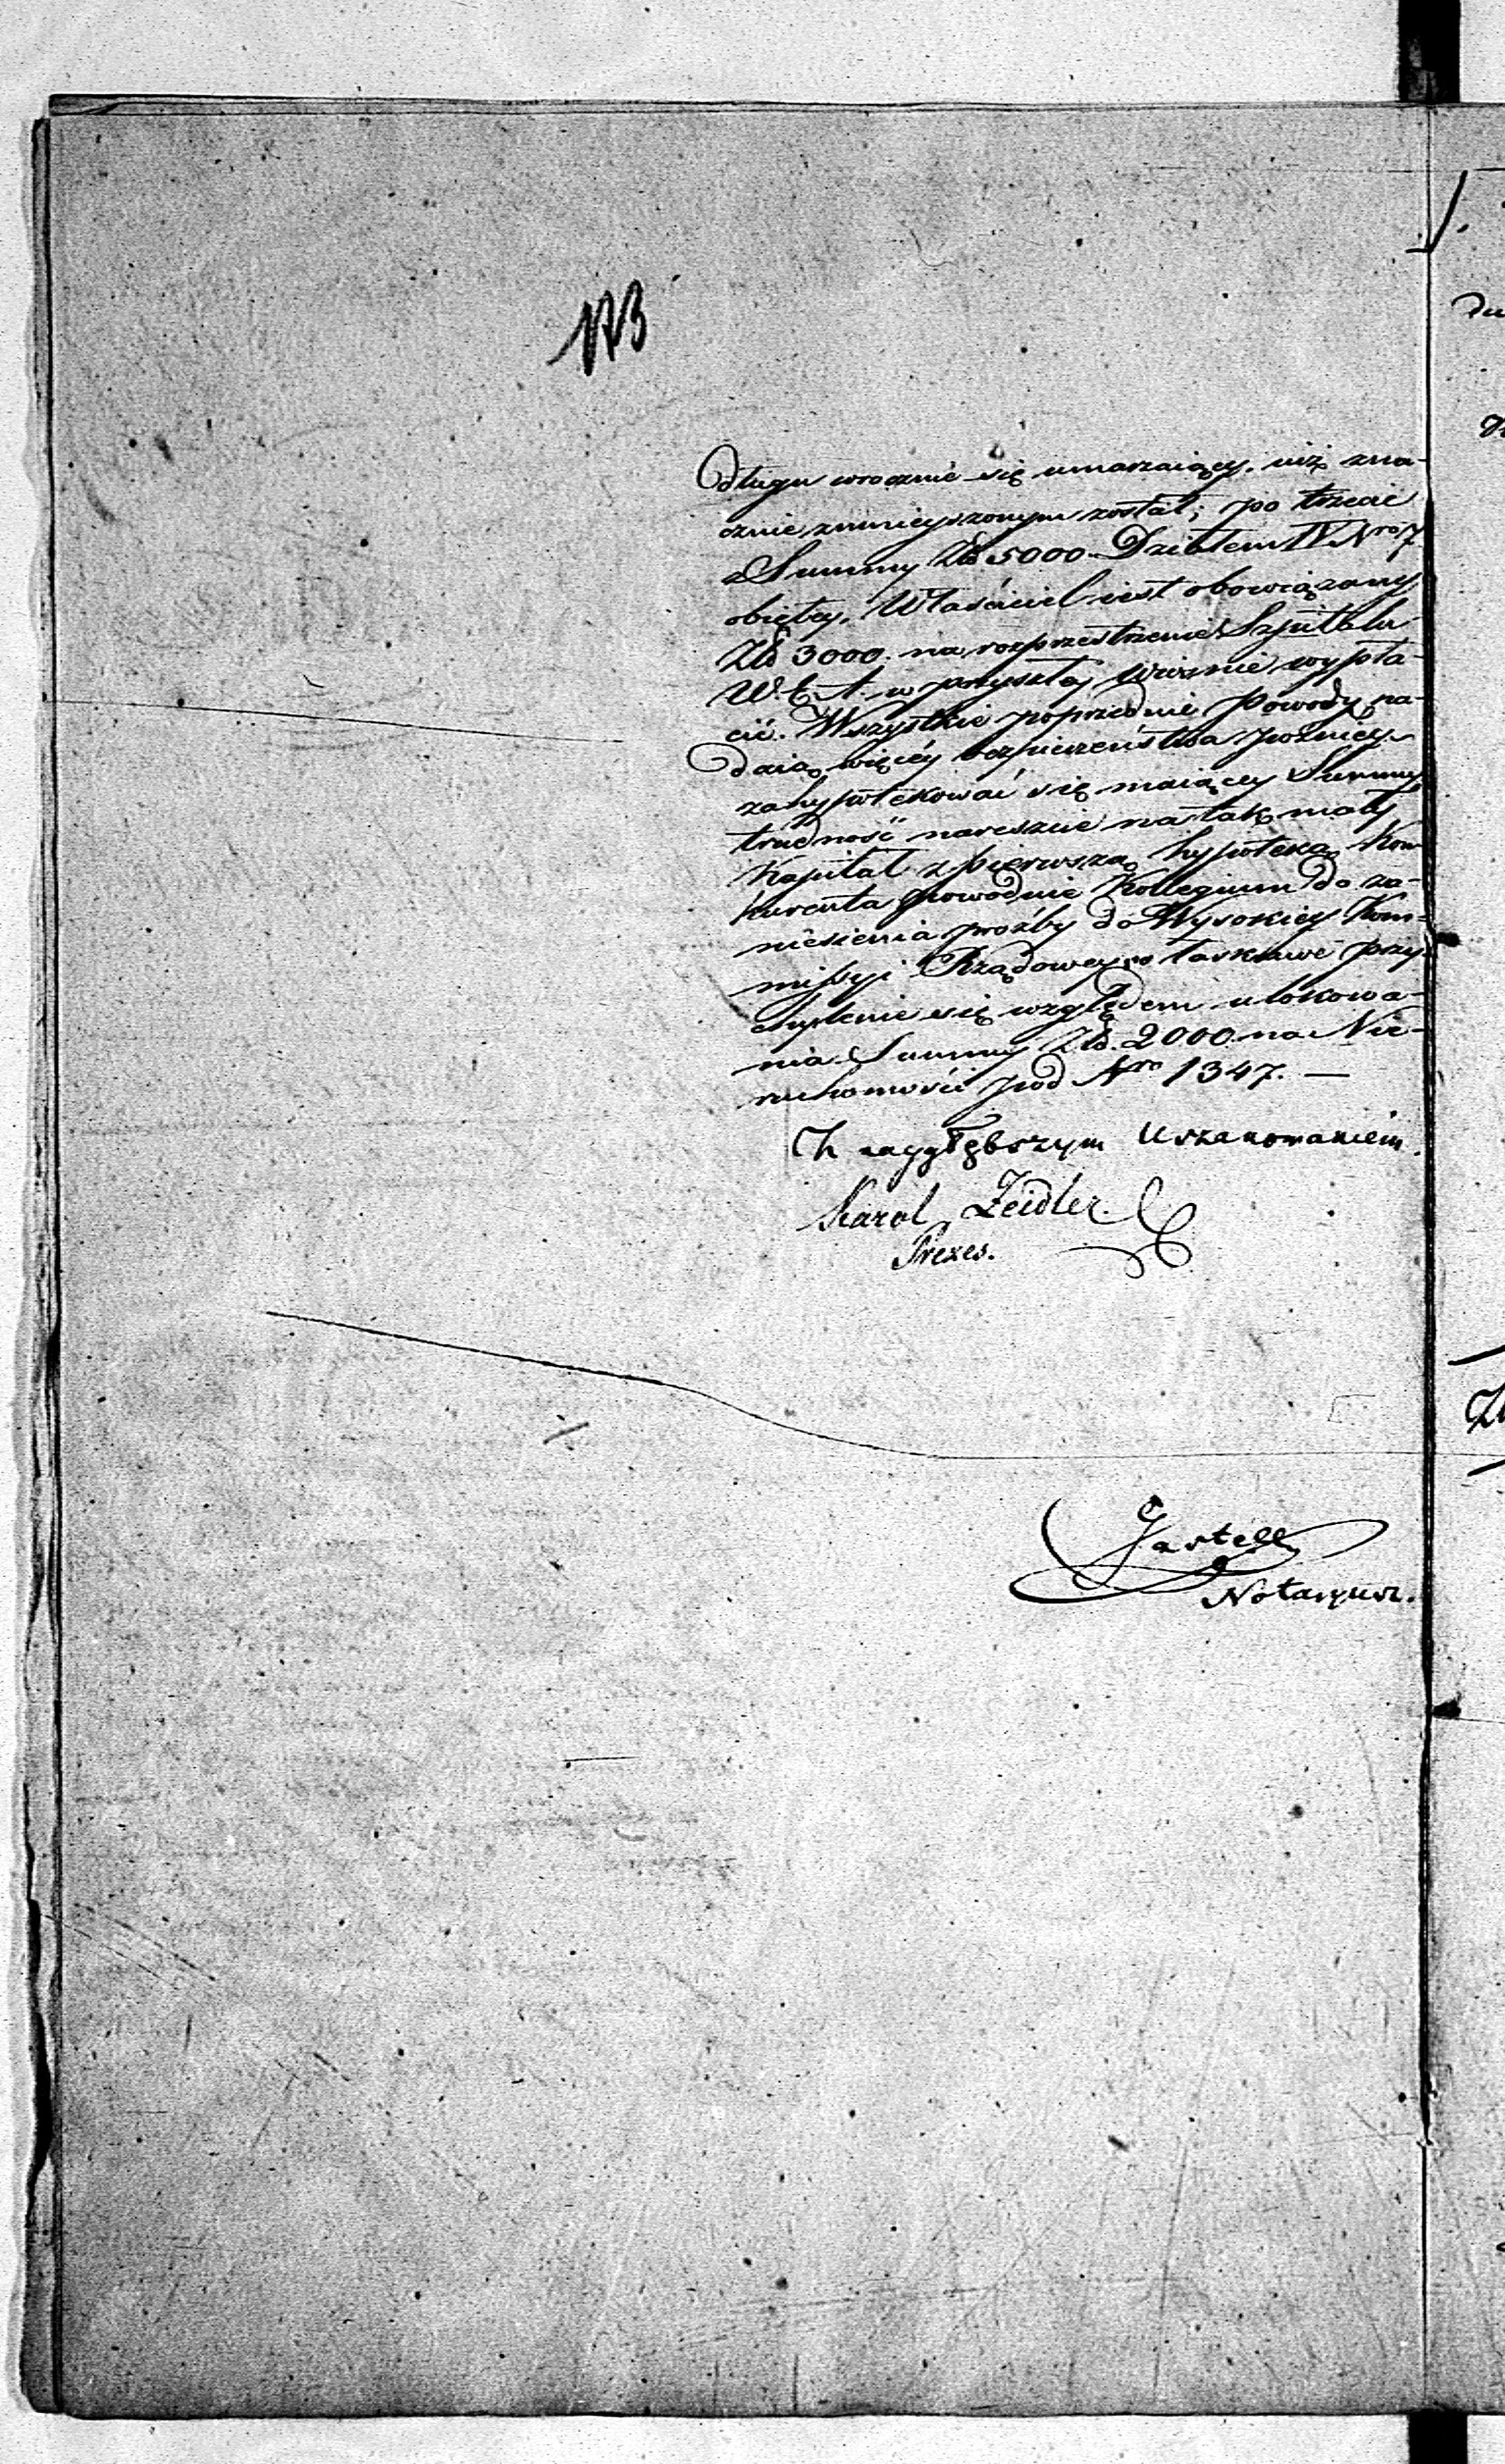 173
długu wrocznie się umarzaiący, iuż zna-
cznie zmnieyszonym został; po trzecie
z Summy Zł 5000 Działem IV Nro 7.
obiętey, Właściciel iest obowiązany
Zł 3000. na rozprzestrzenie Szpitalu
W. E. A. w przyszłey wiosnie wypła-
cić. Wszystkie poprzednie powody na-
daią więcéy bezpieczeństwa pozniey
zahypotekować się maiącey Summy
trudność nareszcie na tak mały
Kapitał z pierwszą hypoteką Kon-
kurenta powoduie Kollegium do za-
niesienia prozby do Wysokiey Kom-
missyi Rządowey o łaskawe przy-
chylenie się względem ulokowa-
nia Summy Zł. 2000. na Nie-
ruchomości pod Nro 1347. —
Z naygłębszym Uszanowaniem.
Karol Zeidler.
Prezes.
Jastell
Notaryusz.